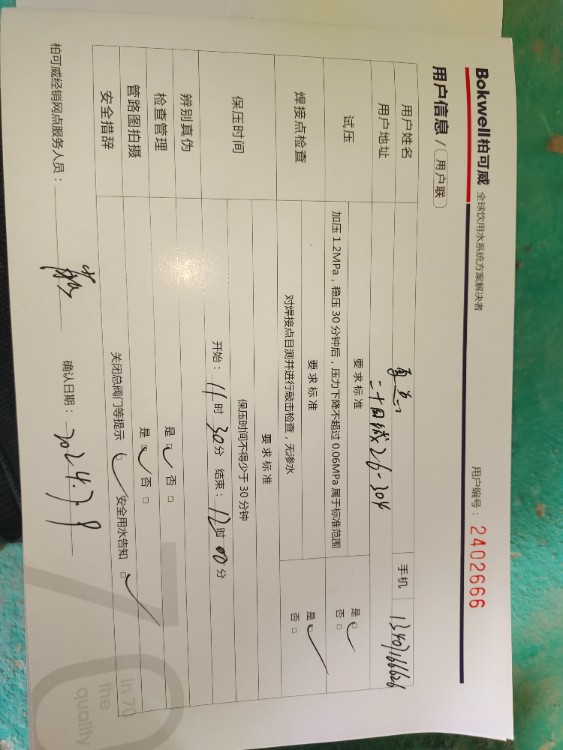 Bokwell柏可威 全球饮用水系统方案解决者 用户编号：2402666
用户信息 / 用户联
用户姓名 手机
用户地址 26-304
试压 要求标准
加压 1.2MPa，稳压 30 分钟后，压力下降不超过 0.06MPa 属于标准范围 是 ✓ 否 □
焊接点检查 要求标准
对焊接点目测并进行敲击检查，无渗水 是 ✓ 否 □
保压时间 要求标准
保压时间不得少于 30 分钟
开始：11 时 30 分 结束：12 时 00 分
辨别真伪
检查管理 是 ✓ 否 □
管路图拍摄 是 ✓ 否 □
安全措辞 关闭总阀门等提示 ✓ 安全用水告知 □ ✓
柏可威经销网点服务人员： 确认日期：2024.7.9
In 70
the
quality